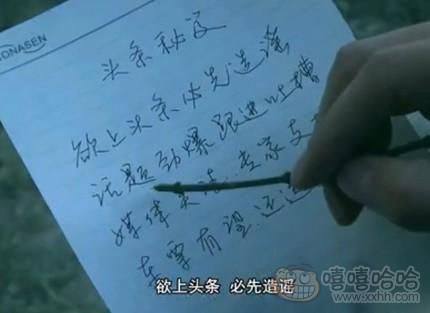 ONASEN
头条秘
欲上头条必先造谣
话题劲爆跟进吐槽
媒体 专家支
车票有望
欲上头条 必先造谣
嘻嘻哈哈
www.xxhh.com